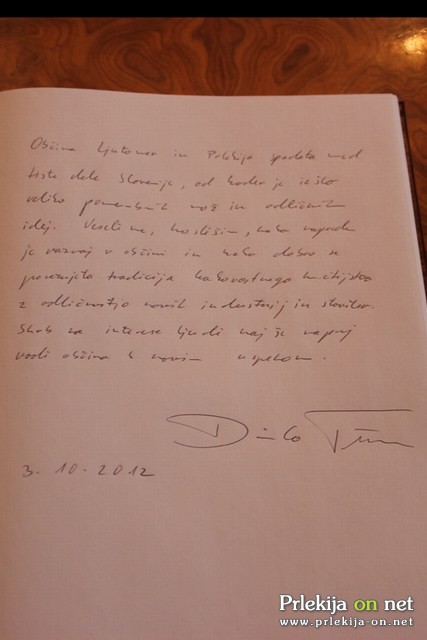 Občina Ljutomer in Prlekija spadata med
tiste dele Slovenije, od koder je izšlo
veliko pomembnih mož in odličnih
idej. Veseli me, ko slišim, kako napreden
je razvoj v občini in kako dobro se
povezujeta tradicija kakovostnega kmetijstva
z odličnostjo novih industrij in storitev.
Skrb za interese ljudi naj še naprej
vodi občino k novim uspehom.
Danilo Türk
3. 10. 2012
Prlekija on net
www.prlekija-on.net